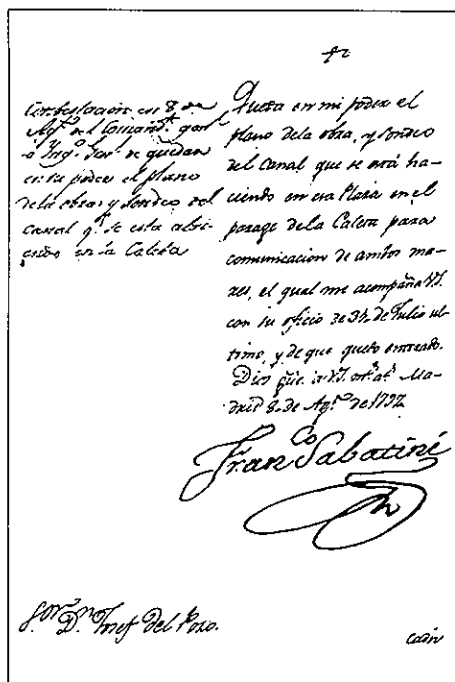 Contestacion en 8 de
Ag.to del Comand.te gral
e Ing.o Gen.l de quedar
en su poder el plano
de la obra y sondeo del
canal q.e se está abri-
endo en la Caleta
Queda en mi poder el
plano dela obra, y sondeo
del Canal que se está ha-
ciendo en esa Plaza en el
parage dela Caleta para
comunicacion de ambos ma-
res, el qual me acompaña V.S.
con su oficio de 31 de Julio ul-
timo, y de que quedo enterado.
Dios gue. a V.S. m.s a.s Ma-
drid 8 de Ag.to de 1792
Fran.co Sabatini
S.or D.n Josef del Pozo.